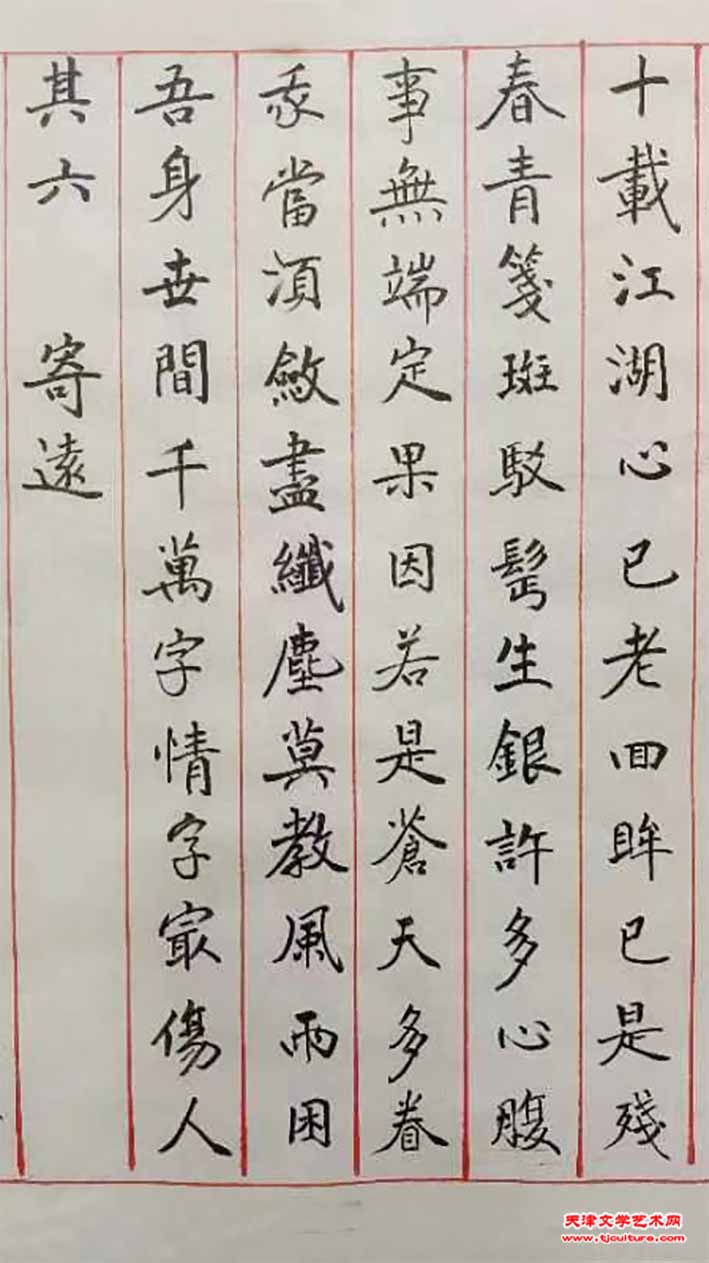 十載江湖心已老回眸已是殘
春青箋斑駁髩生銀許多心腹
事無端定果因若是蒼天多眷
永當須斂盡纖塵莫教風雨困
吾身世間千萬字情字㝡傷人
其六 寄遠
天津文学艺术网
www.tjculture.com